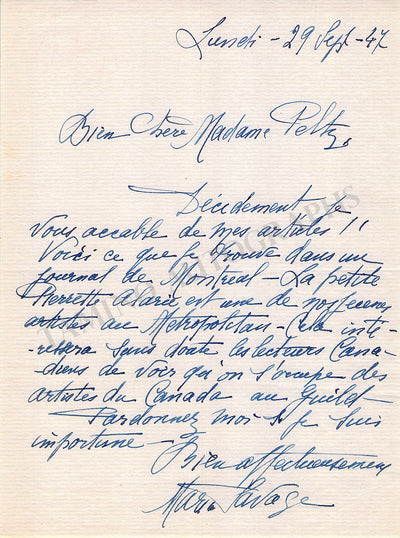 Lundi - 29 Sept - 47
Bien Chère Madame Peltz,
Décidément je
vous accable de mes articles !!
Voici ce que je trouve dans un
journal de Montreal - La petite
Pierrette Alarie est une de nos jeunes
artistes au Metropolitan - Cela inté-
ressera sans doute les lecteurs Cana-
diens de voir qu'on s'occupe des
artistes du Canada au Guild -
Pardonnez moi si je suis
importune -
Bien affectueusement
Marie Savage